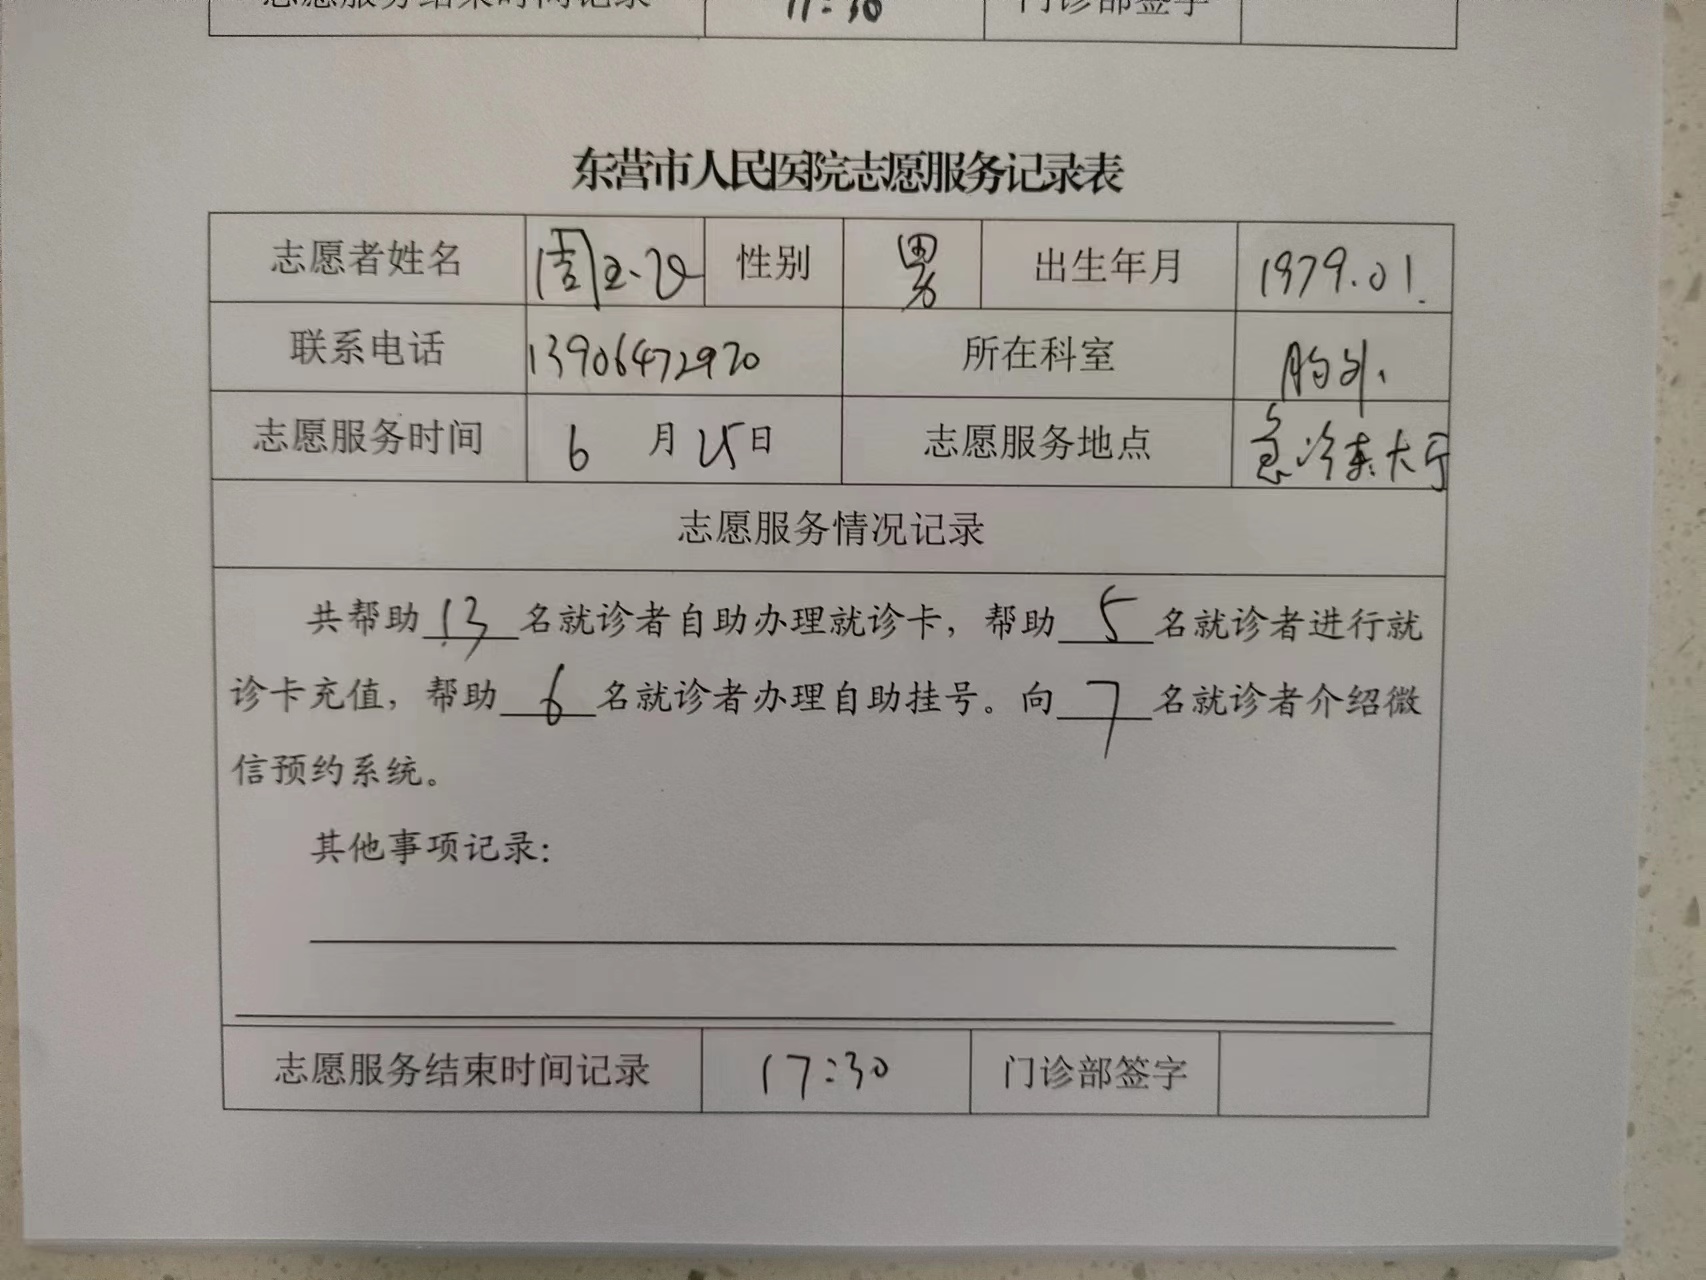 志愿服务结束时间记录 11:30 门诊部签字
东营市人民医院志愿服务记录表
志愿者姓名 周 性别 男 出生年月 1979.01.
联系电话 13906472920 所在科室 胸外
志愿服务时间 6 月 25 日 志愿服务地点 急诊东大厅
志愿服务情况记录
共帮助 13 名就诊者自助办理就诊卡，帮助 5 名就诊者进行就
诊卡充值，帮助 6 名就诊者办理自助挂号。向 7 名就诊者介绍微
信预约系统。
其他事项记录：
志愿服务结束时间记录 17:30 门诊部签字